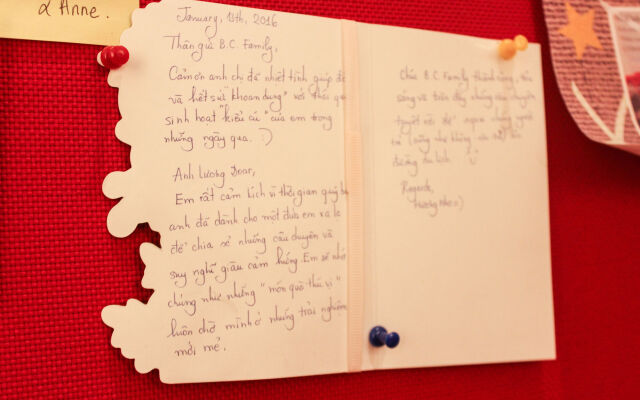 & Anne.
January, 13th, 2016
Thân gửi B.C. Family,
Cảm ơn anh chị đã nhiệt tình giúp đỡ
và hết sức "khoan dung" với thói quen
sinh hoạt "kiểu cú" của em trong
những ngày qua. :)
Anh Lương Doar,
Em rất cảm kích vì thời gian quý báu
anh đã dành cho một đứa em xa lạ
để chia sẻ những câu chuyện và
suy nghĩ giàu cảm hứng. Em sẽ nhớ
chúng như những "món quà thú vị"
luôn chờ mình ở những trải nghiệm
mới mẻ.
Chúc B.C. Family thành công,
sáng và tràn đầy những câu chuyện
tuyệt vời để
đường du lịch.
Regards,